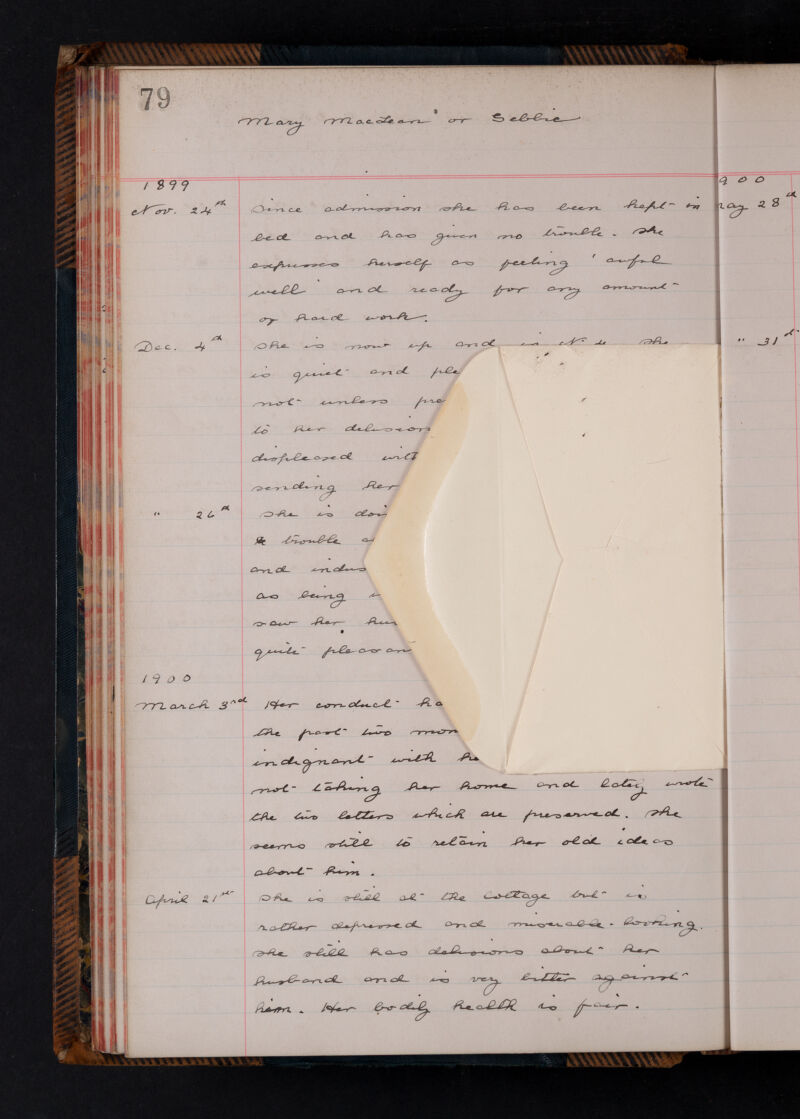 79
Mary MacLean or Gebbie
1899
900
Nov. 24th Since admission she has been kept in
bed and has given no trouble. She
expresses herself as feeling 'awful
well' and ready for any amount
of hard work.
Dec. 4th She is now up and in She
is quiet and ple
not unless pre
to her delusion
displeased with
sending her
" 26th She is doin
& trouble a
and indus
as being
saw her hus
quite pleasan
1900
March 3rd Her conduct ha
the past two mon
indignant with he
not taking her home and lately wrote
the two letters which are preserved. She
seems still to retain her old ideas
about him.
April 21st She is still at the Cottage but is
rather depressed and miserable-looking.
She still has delusions about her
husband and is very bitter against
him. Her bodily health is fair.
ay 28th
" 31st